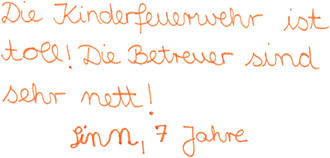 Die Kinderfeuerwehr ist
toll! Die Betreuer sind
sehr nett!
Linn, 7 Jahre